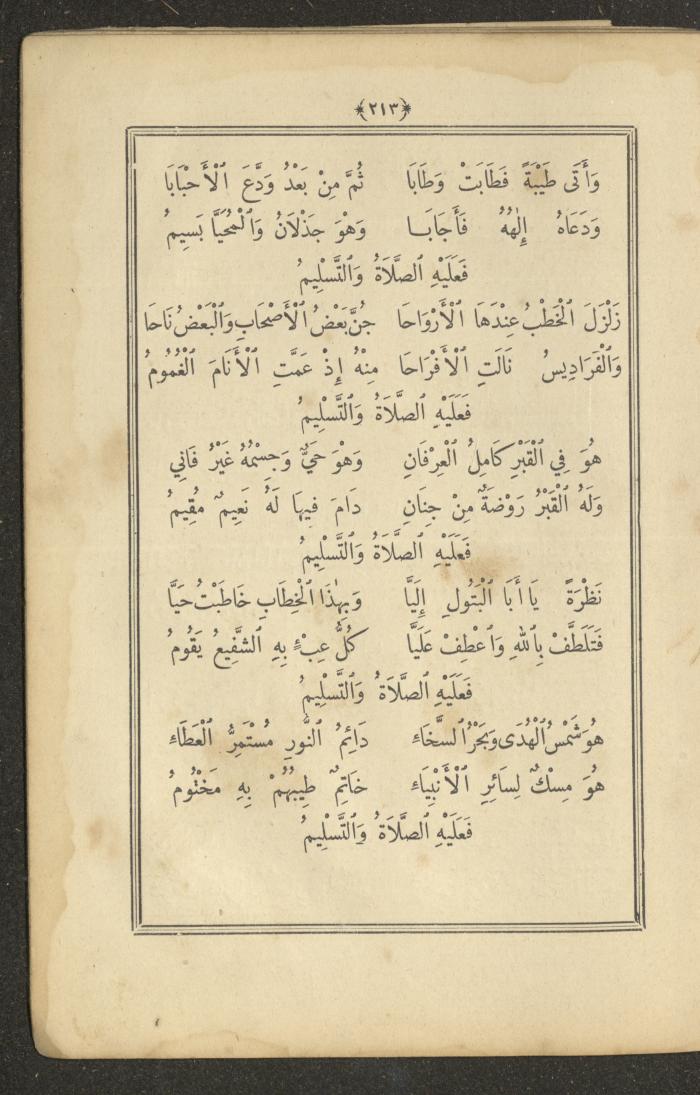 ﴿٢١٣﴾
وَأَتَى طَيْبَةً فَطَابَتْ وَطَابَا ثُمَّ مِنْ بَعْدُ وَدَّعَ ٱلْأَحْبَابَا
وَدَعَاهُ إِلٰهُهُ فَأَجَابَا وَهْوَ جَذْلَانُ وَٱلْمُحَيَّا بَسِيمُ
فَعَلَيْهِ ٱلصَّلَاةُ وَٱلتَّسْلِيمُ
زَلْزَلَ ٱلْخَطْبُ عِنْدَهَا ٱلْأَرْوَاحَا جُنَّ بَعْضُ ٱلْأَصْحَابِ وَٱلْبَعْضُ نَاحَا
وَٱلْفَرَادِيسُ نَالَتِ ٱلْأَفْرَاحَا مِنْهُ إِذْ عَمَّتِ ٱلْأَنَامَ ٱلْغُمُومُ
فَعَلَيْهِ ٱلصَّلَاةُ وَٱلتَّسْلِيمُ
هُوَ فِي ٱلْقَبْرِ كَامِلُ ٱلْعِرْفَانِ وَهْوَ حَيٌّ وَجِسْمُهُ غَيْرُ فَانِي
وَلَهُ ٱلْقَبْرُ رَوْضَةٌ مِنْ جِنَانِ دَامَ فِيهَا لَهُ نَعِيمٌ مُقِيمُ
فَعَلَيْهِ ٱلصَّلَاةُ وَٱلتَّسْلِيمُ
نَظْرَةً يَا أَبَا ٱلْبَتُولِ إِلَيَّا وَبِهٰذَا ٱلْخِطَابِ خَاطَبْتُ حَيَّا
فَتَلَطَّفْ بِٱللهِ وَٱعْطِفْ عَلَيَّا كُلُّ عِبْءٍ بِهِ ٱلشَّفِيعُ يَقُومُ
فَعَلَيْهِ ٱلصَّلَاةُ وَٱلتَّسْلِيمُ
هُوَ شَمْسُ ٱلْهُدَى وَبَحْرُ ٱلسَّخَاءِ دَائِمُ ٱلنُّورِ مُسْتَمِرُّ ٱلْعَطَاءِ
هُوَ مِسْكٌ لِسَائِرِ ٱلْأَنْبِيَاءِ خَاتِمٌ طِيبُهُمْ بِهِ مَخْتُومُ
فَعَلَيْهِ ٱلصَّلَاةُ وَٱلتَّسْلِيمُ